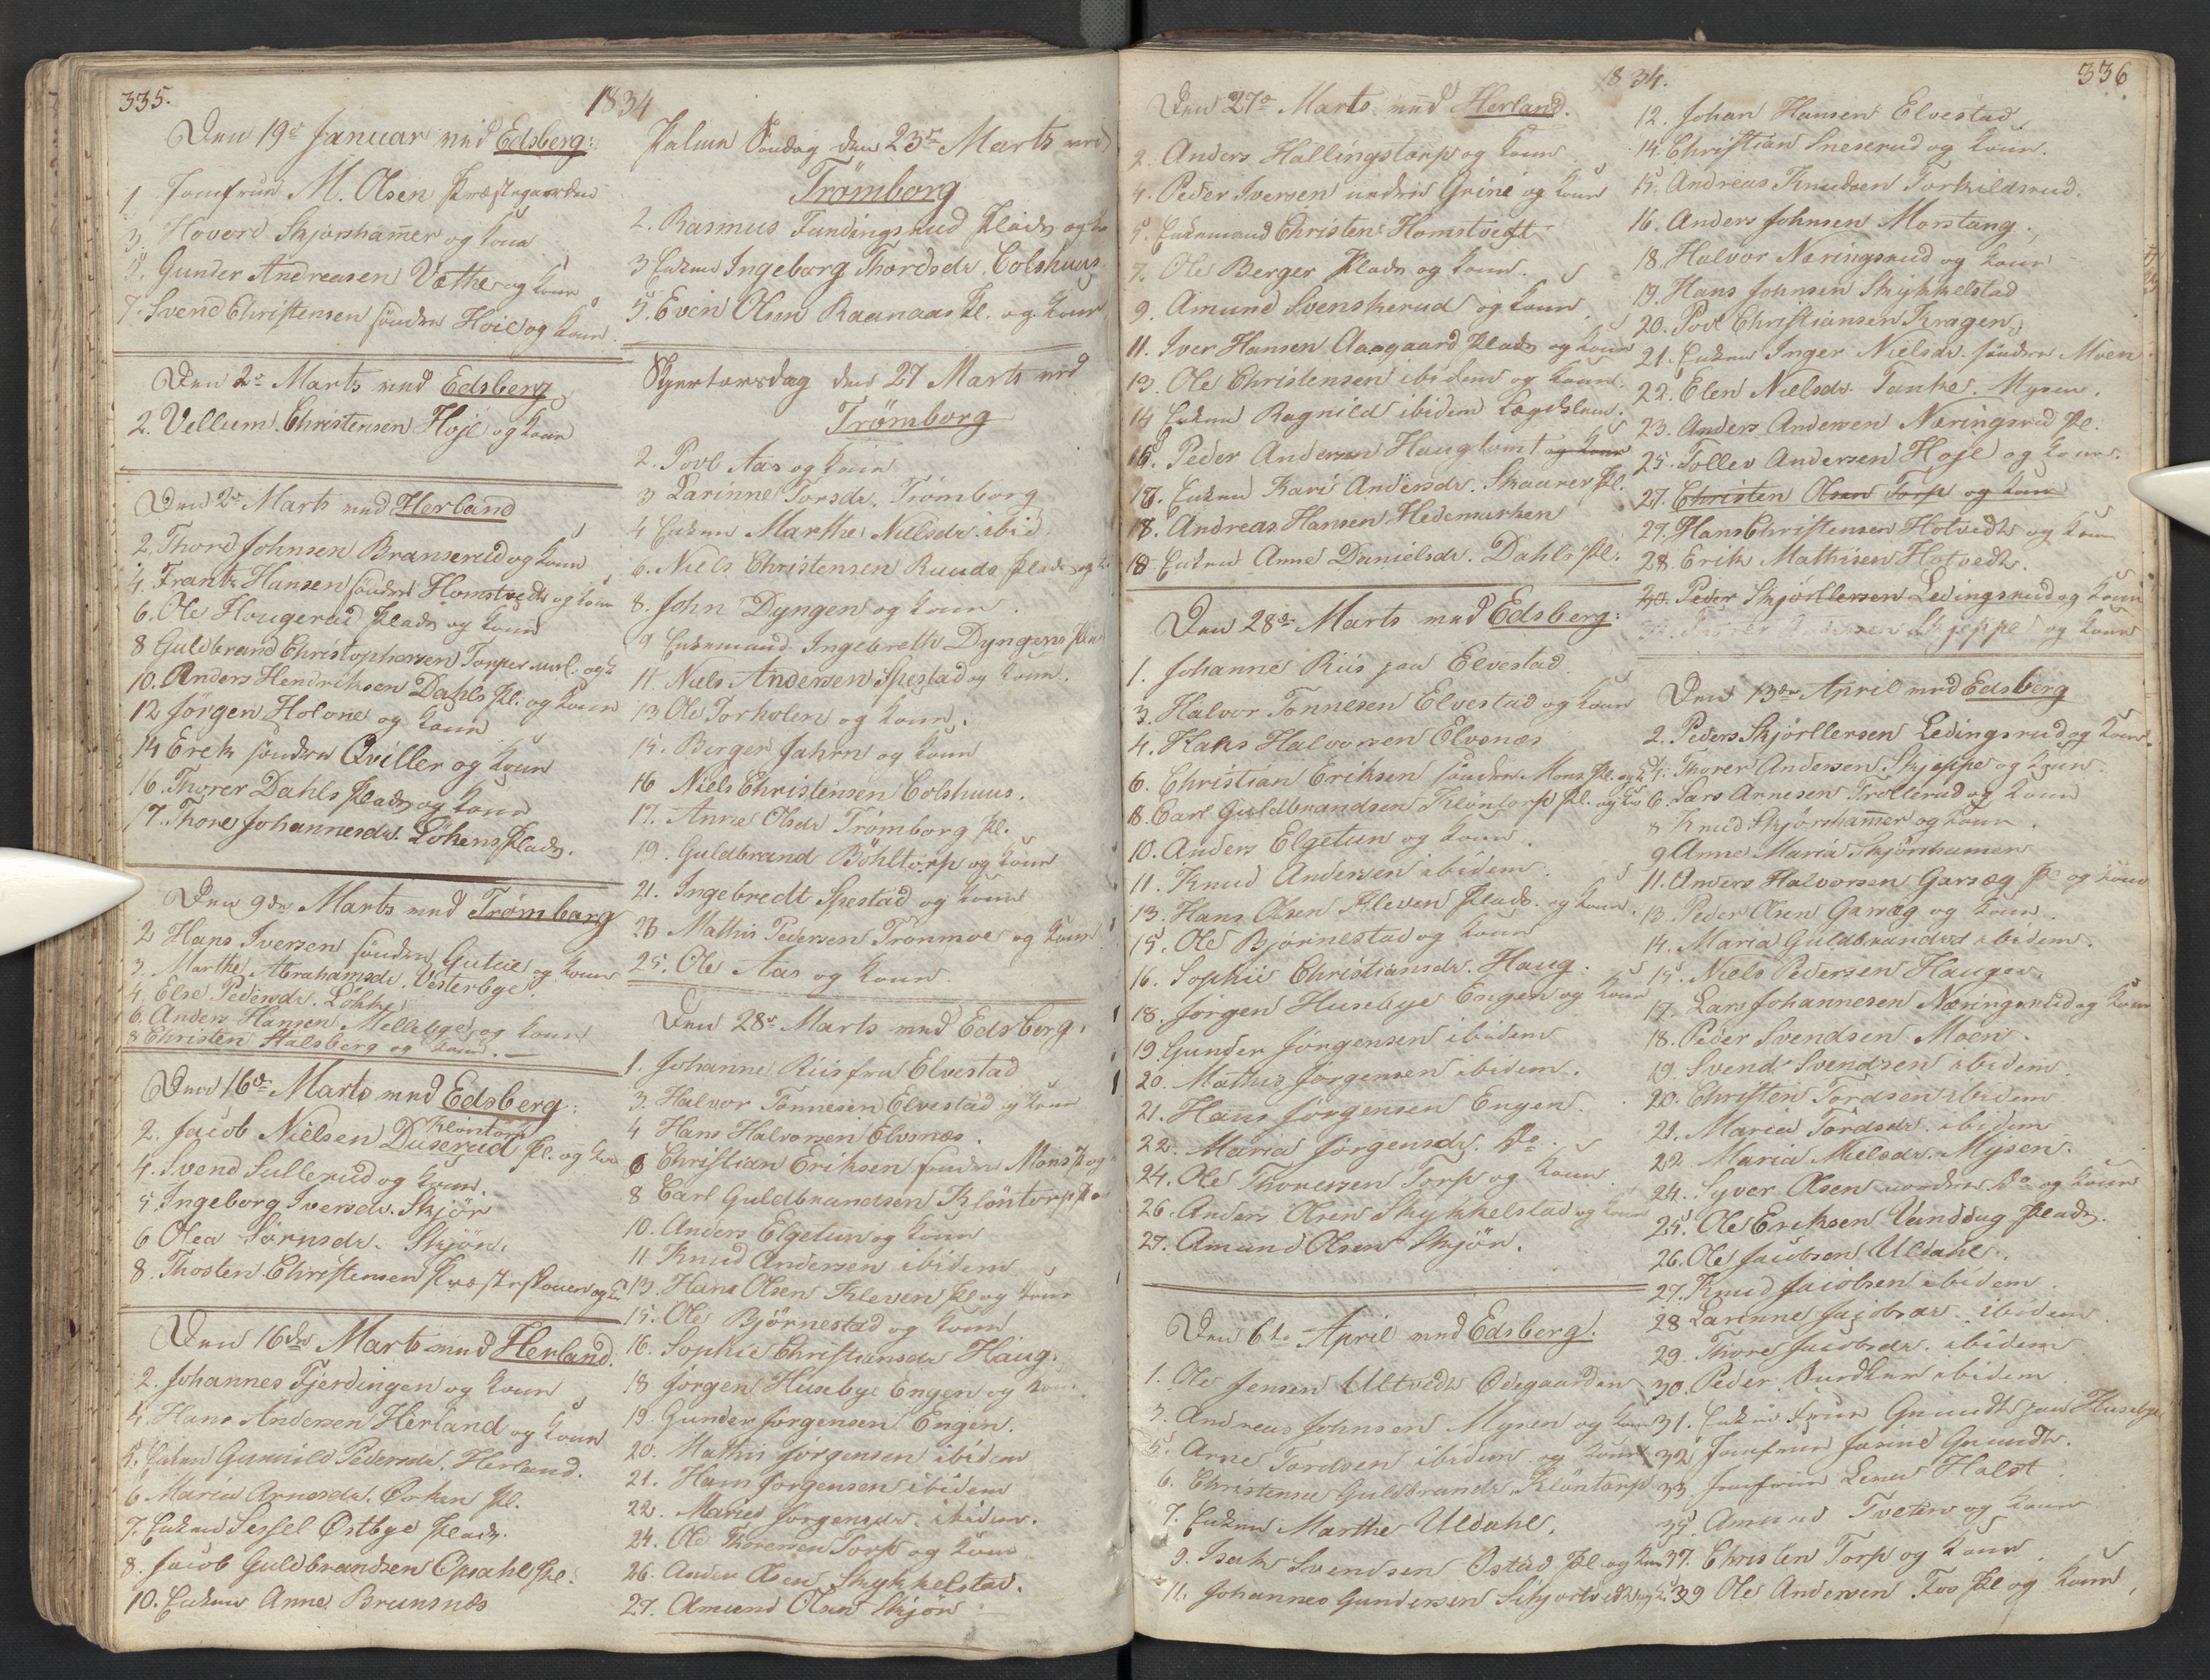 335.
1834
Den 19de Januar ved Edsberg:
1 Jomfrue M. Olsen Præstegaarden
3. Hovord Skjørshammer og Kone
5. Gunder Andreasen Væthe og Kone
7. Svend Christensen søndre Høie og Kone
Den 2de Marts ved Edsberg
2. Vellum Christensen Høje og Kone
Den 2de Marts ved Herland
2. Thord Johnsen Branserud og Kone
4. Frantz Hansen søndre Homstvedt og Kone
6. Ole Hougerud Plads og Kone
8 Guldbrand Christophersen Topper
10. Anders Hendriksen Dahls Pl. og Kone
12 Jørgen Holone og Kone
14 Erek søndre Qviller og Kone
16. Thorer Dahls Plads og Kone
17. Thore Johannesdr. Løkens Plads.
Den 9de Marts ved Trømborg
2 Hans Iversen søndre Gutue og Kone
3. Marthe Abrahamsdr. Vesterbye.
4. Else Pedersdr. Løkke
6. Anders Hansen Mellebye og Kone
8 Christen Halsberg og Kone.
Den 16de Marts ved Edsberg:
Kløntorp
2. Jacob Nielsen Duserud Pl. og Kone
4. Svend Sullerud og Kone.
5. Ingeborg Iversdr. Skjør
6 Olea Sørnsdr. Skjør.
8. Thosten Christensen Præsteskouen og K
Den 16de Marts ved Herland.
2. Johannes Fjerdingen og Kone
4. Hans Andersen Herland og Kone
5. Enken Gunnild Pedersdr. Herland.
6 Maria Arnesdr. Ørken Pl.
7. Enken Sessel Østbye Plads.
8. Jacob Guldbrandsen Opsahl Pl.
10. Enken Anne Brunsnæs
Palme Søndag den 23de Marts ved
Trømborg
2. Rasmus Fundingsrud Plads og Ko
3 Enken Ingeborg Thordsdr. Colshuus.
5. Even Olsen Raanaas Pl. og Kone
Skjertorsdag den 27 Marts ved
Trømborg
2. Povl Aas og Kone
3 Larinne Torsdr. Trømborg
4 Enken Marthe Nielsdr. ibid
6. Niels Christensen Ruuds Plads og K
8. John Dyngen og Kone.
9 Enkemand Ingebrett Dyngens Plads
11. Niels Andersen Spestad og Kone.
13 Ole Torholen og Kone.
15. Berger Jahrn og Kone
16 Niels Christensen Colshuus.
17. Anne Olsdr. Trømborg Pl.
19. Guldbrand Böhltorp og Kone
21. Ingebredt Spestad og Kone
23 Mathis Pedersen Trønmoe og Kone
25. Ole Aas og Kone
Den 28de Marts ved Edsberg.
1. Johanne Riis fra Elvestad
3. Halvor Tønnesen Elvestad og Kone
4 Hans Halvorsen Elvsnæs.
6 Christian Eriksen søndre Mons Pl og
8 Carl Guldbrandsen Kløntorp Pl
10. Anders Elgetun og Kone
11 Knud Andersen ibidem
13. Hans Olsen Kleven Pl og Kone
15. Ole Bjørnestad og Kone
16. Sophie Christiansdr. Haug.
18 Jørgen Husebye Engen og Kone.
19. Gunder Jørgensen Engen.
20. Mathis Jørgensen ibidem
21. Hans Jørgensen ibidem
22. Maria Jørgensdr. ibidem.
24. Ole Thoresen Torp og Kone
26. Anders Olsen Skykkelstad.
27. Amund Olsen Skjør
1834.
336
Den 27de Marts ved Herland.
2. Anders Hallingstorp og Kone
4. Peder Iversen nedre Grine og Kone
5. Enkemand Christen Homstvedt
7. Ole Berger Plads og Kone.
9. Amund Svenskerud og Kone.
11. Iver Hansen Aasgaard Plads og Kone
13. Ole Christensen ibidem og Kone.
14 Enken Ragnild ibidem Lægdslem.
16. Peder Andersen Haugtomt og Kone
17. Enken Kari Andersdr. Skaarer Pl.
18. Andreas Hansen Hedemarken
18. Enken Anne Danielsdr. Dahls Pl.
Den 28de Marts ved Edsberg:
1. Johanne Riis paa Elvestad
3. Halvor Tønnesen Elvestad og Kone
4. Hans Halvorsen Elvsnæs
6. Christian Eriksen søndre Mons Pl. og K
8. Carl Guldbrandsen Kløntorp Pl. og Ko
10. Anders Elgetun og Kone.
11. Knud Andersen ibidem.
13. Hans Olsen Kleven Plads og Kone.
15. Ole Bjørnestad og Kone
16. Sophie Christiansdr. Haug.
18. Jørgen Husebye Engen og Kone
19. Gunder Jørgensen ibidem
20. Mathis Jørgensen ibidem.
21. Hans Jørgensen Engen.
22. Maria Jørgensdr. Do.
24. Ole Thoressen Torp og Kone.
26. Anders Olsen Skykkelstad og Kone
27. Amund Olsen Skjør.
Den 6te April ved Edsberg.
1. Ole Jensen Ultvedt Ødegaarden
3. Andreas Johnsen Myren og Kone
5. Arne Tordsen ibidem og Kone
6. Christense Guldbrandsdr. Kløntorp
7. Enken Marthe Uldahl.
9. Isak Svendsen Østad Pl. og Kone
11. Johannes Gundersen Skjortvedt og K.
12. Johan Hansen Elvestad.
14. Christian Sneserud og Kone.
15. Andreas Knudsen Torkildsrud.
16. Anders Johnsen Morstang.
18. Halvor Næringsrud og Kone
19. Hans Johnsen Skykkelstad
20. Povl Christiansen Kragen
21. Enken Inger Nielsdr. søndre Moen
22. Elen Nielsdr. Tanke. Mysen.
23. Anders Andersen Næringsrud Pl.
25. Tollev Andersen Høje og Kone.
27. Christen Olsen Torp og Kone
27. Hans Christensen Hotvedt og Kone
28. Erik Mathisen Hotvedt.
30. Peder Skjørllersen Ledingsrud og Kone
Skjeppe og Kone
Den 13de April ved Edsberg
2. Peder Skjørllersen Ledingsrud og Kone.
4. Thorer Andersen Skjeppe og Kone.
6. Lars Arnesen Trollerud og Kone
8 Knud Skjørshammer og Kone.
9 Anne Maria Skjørshammer
11. Anders Halvorsen Garsæg Pl og Kone
13. Peder Olsen Garsæg og Kone.
14. Maria Guldbrandsd ibidem.
15. Niels Pedersen Haugen
17. Lars Johannesen Næringsrud og Kone
18. Peder Svendsen Moen.
19. Svend Svendsen ibidem.
20. Christen Tordsen ibidem
21. Maria Tordsdr. ibidem
22 Maria Nielsdr. Mysen.
24. Syver Olsen nordre Do og Kone
25. Ole Eriksen Vanddug Plads.
26. Ole Jacobsen Uldahl.
27. Knud Jacobsen ibidem.
28 Larinne Jacobsdr. ibidem
29. Thore Jacobsdr. ibidem.
30. Peder ibidem
31. Enke Frue Grundt paa Husebye
32 Jomfrue Jasine Grundt.
33. Jomfrue Lena Holst.
35. Amund Tveten og Kone
37. Christen Torp og Kone
39 Ole Andersen Foo Pl og Kone,